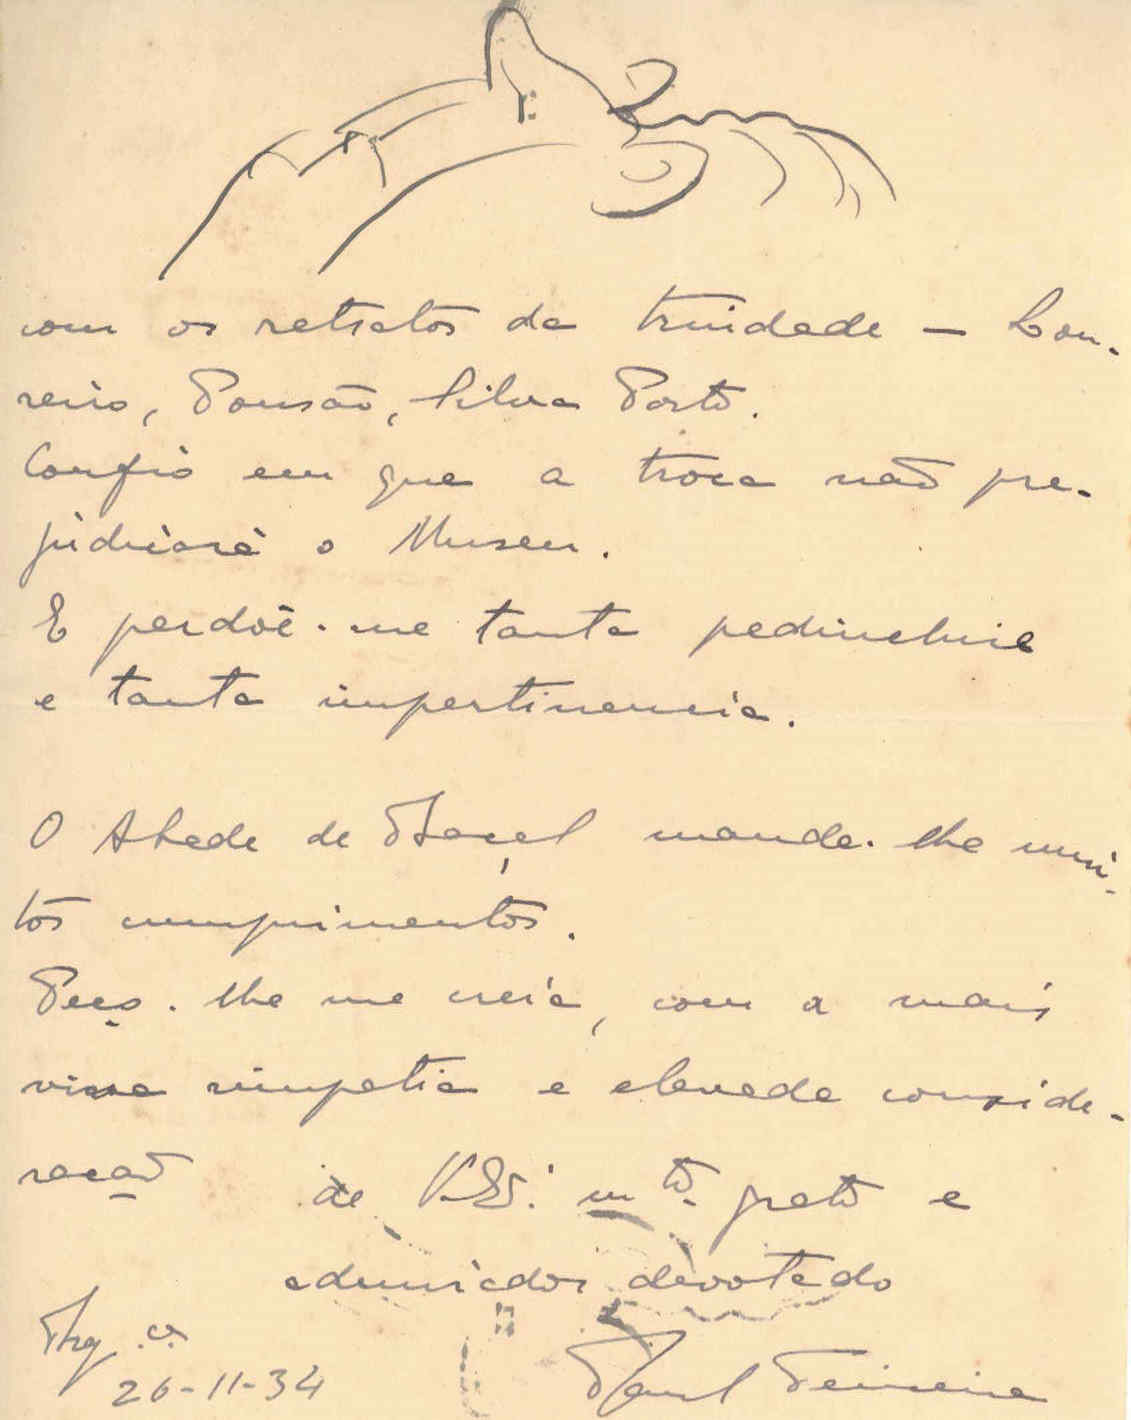 com os retratos da trindade — Lou-
reiro, Pousão, Silva Porto.
Confio em que a troca não pre-
judicará o Museu.
E perdoê-me tanta pedinchice
e tanta impertinencia.
O Abade de Baçal manda-lhe mui-
tos cumprimentos.
Peço-lhe me creia, com a mais
viva simpatia e elevada conside-
ração de V. Ex.ª m.to grato e
admirador devotado
26-11-34 Raul Teixeira